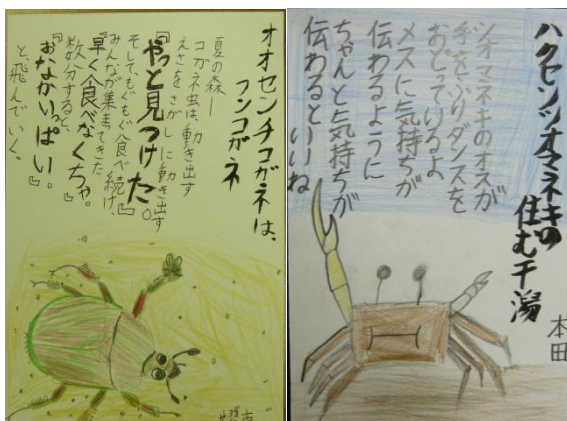 オオセンチコガネは、
フンコガネ
夏の森ー
コガネ虫は、動き出す
えさをさがしに動き出す
『やっと見つけた。』
そしてもぐもぐ食べ続け、
みんなが集まってきた
『早く食べなくちゃ。
数分すると、
『おなかいっぱい。』
と飛んでいく。
ハクセンシオマネキの
住む干潟
本田
シオマネキのオスが
手をふりダンスを
おどっているよ
メスに気持ちが
伝わるように
ちゃんと気持ちが
伝わるといいね